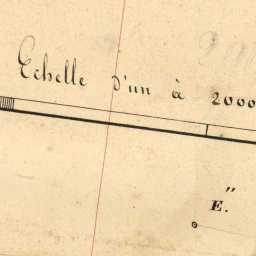 Echelle d'un à 2000
E."